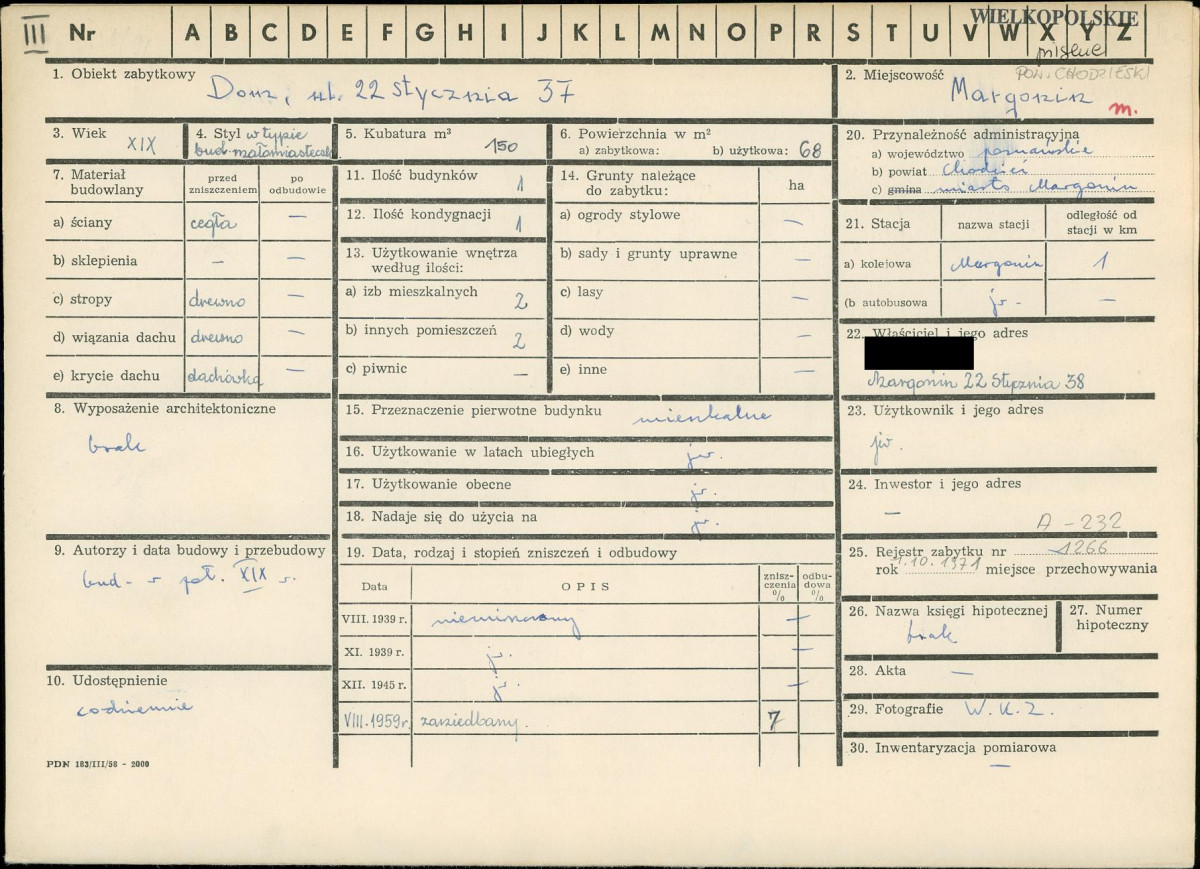 III Nr A B C D E F G H I J K L M N O P R S T U V W X Y Z
WIELKOPOLSKIE
pilskie
POW. CHODZIESKI
1. Obiekt zabytkowy
Dom, ul. 22 Stycznia 37
2. Miejscowość
Margonin
m.
3. Wiek
XIX
4. Styl w typie
bud. małomiasteczk.
5. Kubatura m³
150
6. Powierzchnia w m²
a) zabytkowa: b) użytkowa: 68
7. Materiał budowlany
przed zniszczeniem
po odbudowie
a) ściany cegła —
b) sklepienia – —
c) stropy drewno —
d) wiązania dachu drewno —
e) krycie dachu dachówka —
8. Wyposażenie architektoniczne
brak
9. Autorzy i data budowy i przebudowy
bud. w poł. XIX w.
10. Udostępnienie
codziennie
PDN 183/III/58 - 2000
11. Ilość budynków 1
12. Ilość kondygnacji 1
13. Użytkowanie wnętrza
według ilości:
a) izb mieszkalnych 2
b) innych pomieszczeń 2
c) piwnic —
14. Grunty należące
do zabytku:
ha
a) ogrody stylowe —
b) sady i grunty uprawne —
c) lasy —
d) wody —
e) inne —
15. Przeznaczenie pierwotne budynku mieszkalne
16. Użytkowanie w latach ubiegłych jw.
17. Użytkowanie obecne j.
18. Nadaje się do użycia na j.
19. Data, rodzaj i stopień zniszczeń i odbudowy
Data
OPIS
znisz-
czenia
%
odbu-
dowa
%
VIII. 1939 r.
—
XI. 1939 r. j. —
XII. 1945 r. j. —
VIII. 1959 r. zaniedbany. 7
20. Przynależność administracyjna
a) województwo poznańskie
b) powiat Chodzież
c) gmina miasto Margonin
21. Stacja
nazwa stacji
odległość od
stacji w km
a) kolejowa Margonin 1
(b autobusowa j. —
22. Właściciel i jego adres
Margonin 22 Stycznia 38
23. Użytkownik i jego adres
jw.
24. Inwestor i jego adres
—
A-232
25. Rejestr zabytku nr 1266
rok 1.10.1971 miejsce przechowywania
26. Nazwa księgi hipotecznej
brak
27. Numer
hipoteczny
28. Akta —
29. Fotografie W.K.Z.
30. Inwentaryzacja pomiarowa
—